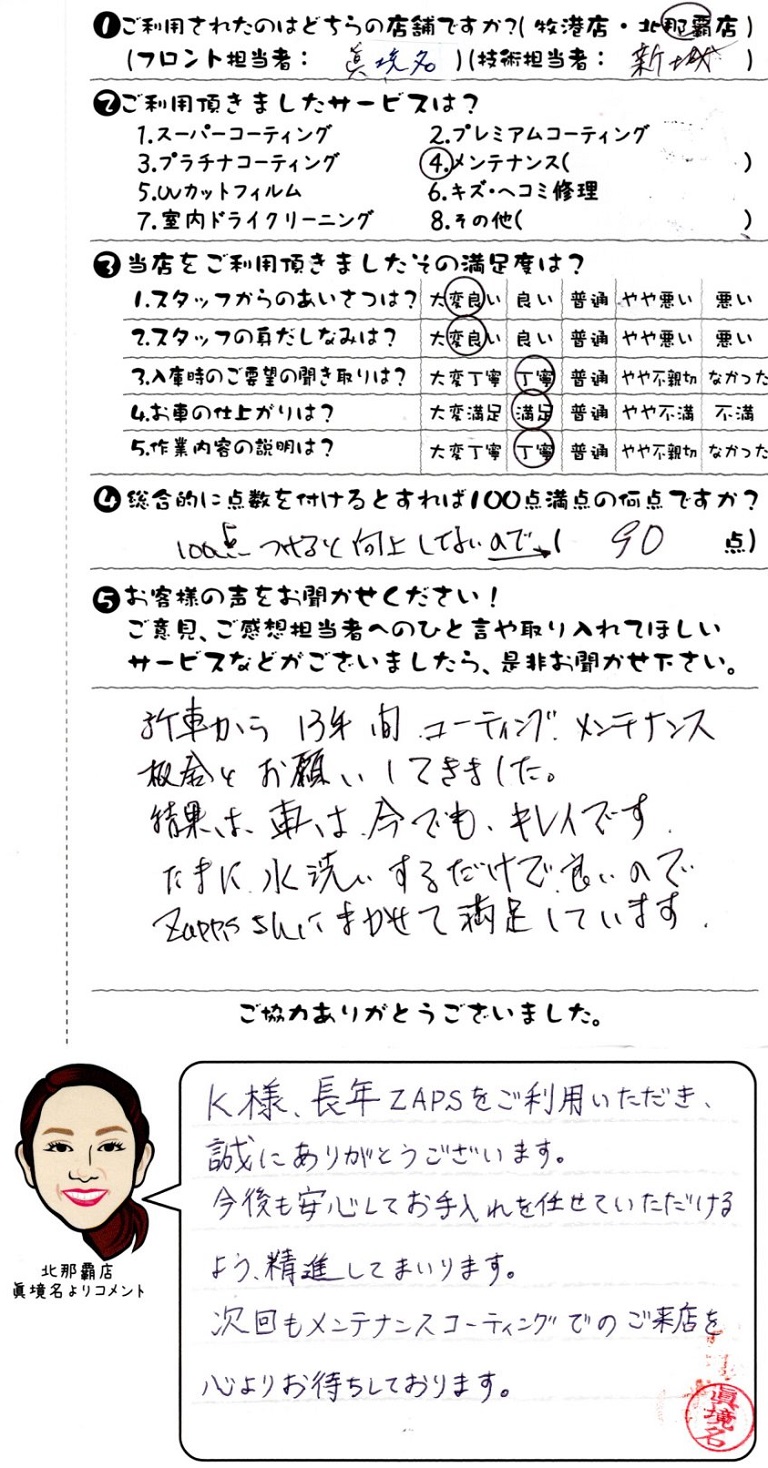 ❶ご利用されたのはどちらの店舗ですか?(牧港店・北那覇店)
(フロント担当者: 眞境名 )(技術担当者: 新城 )
❷ご利用頂きましたサービスは?
1.スーパーコーティング 2.プレミアムコーティング
3.プラチナコーティング 4.メンテナンス( )
5.UVカットフィルム 6.キズ・ヘコミ修理
7.室内ドライクリーニング 8.その他( )
❸当店をご利用頂きましたその満足度は?
1.スタッフからのあいさつは? 大変良い 良い 普通 やや悪い 悪い
2.スタッフの身だしなみは? 大変良い 良い 普通 やや悪い 悪い
3.入庫時のご要望の聞き取りは? 大変丁寧 丁寧 普通 やや不親切 なかった
4.お車の仕上がりは? 大変満足 満足 普通 やや不満 不満
5.作業内容の説明は? 大変丁寧 丁寧 普通 やや不親切 なかった
❹総合的に点数を付けるとすれば100点満点の何点ですか?
100点つけると向上してないので、( 90 点)
❺お客様の声をお聞かせください!
ご意見、ご感想担当者へのひと言や取り入れてほしい
サービスなどがございましたら、是非お聞かせ下さい。
新車から 13年間 コーティング メンテナンス
板金と お願いしてきました。
結果は、車は 今でも、キレイです.
たまに 水洗い するだけで 良いので
Zappsさんにまかせて満足しています.
ご協力ありがとうございました。
K様、長年ZAPSをご利用いただき、
誠にありがとうございます。
今後も安心してお手入れを任せていただける
よう、精進してまいります。
次回もメンテナンスコーティングでのご来店を
心よりお待ちしております。
眞境名
北那覇店
眞境名よりコメント